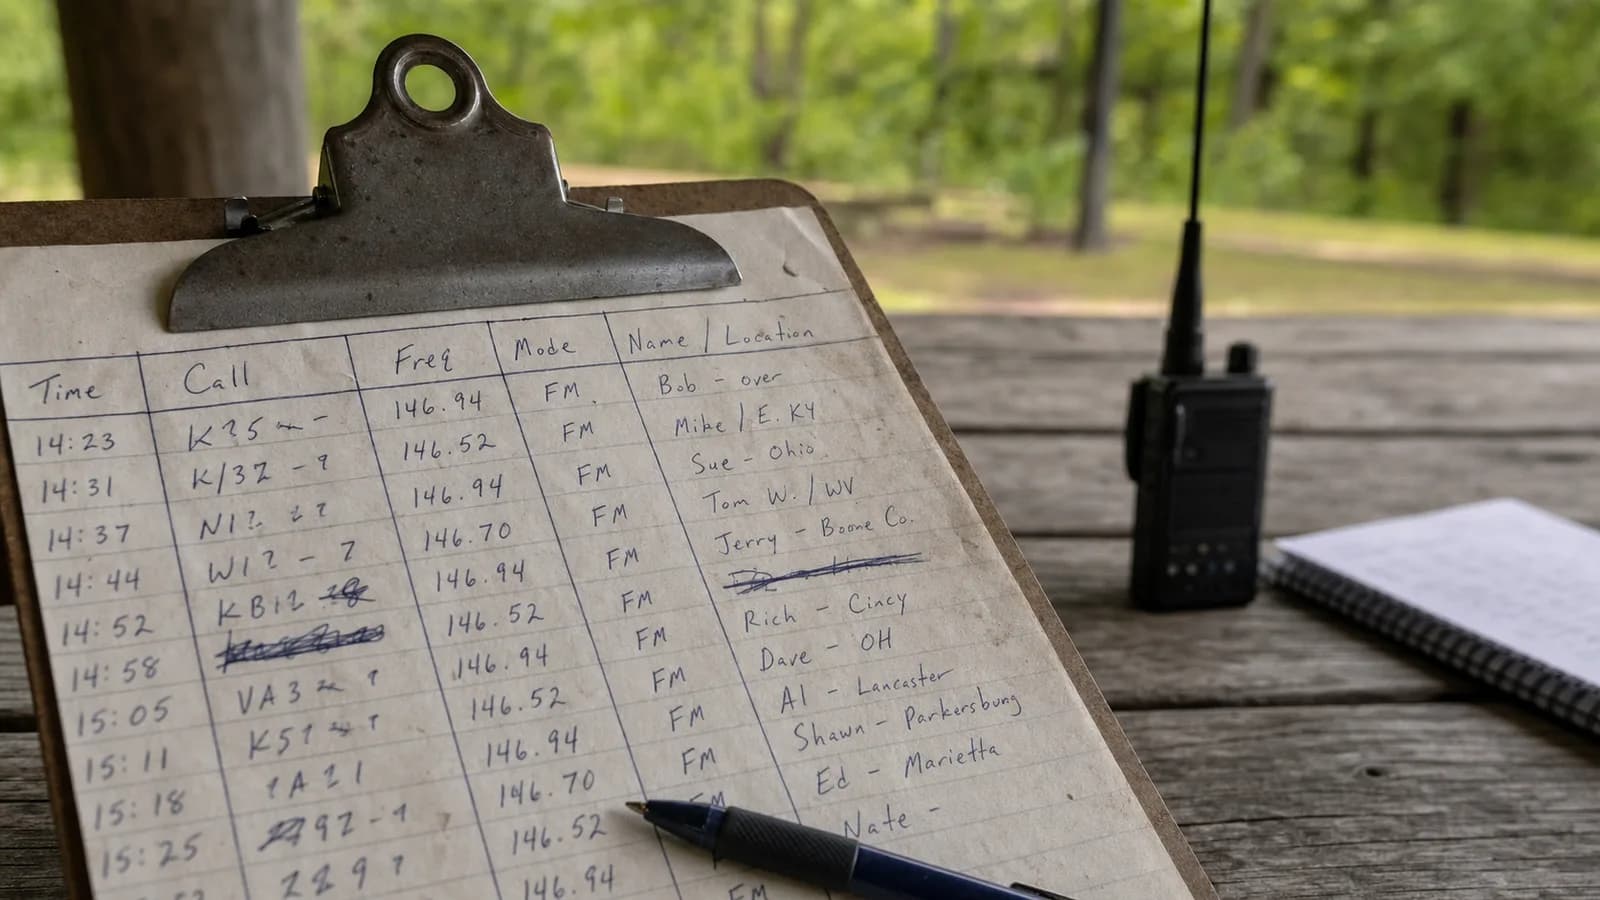 Time Call Freq Mode Name / Location
14:23 146.94 FM Bob - over
14:31 146.52 FM Mike / E. KY
14:37 146.94 FM Sue - Ohio
14:44 146.70 FM Tom W. / WV
14:52 146.94 FM Jerry - Boone Co.
14:58 146.52 FM
15:05 VA3 146.94 FM Rich - Cincy
15:11 146.52 FM Dave - OH
15:18 146.94 FM Al - Lancaster
15:25 146.70 FM Shawn - Parkersburg
146.52 FM Ed - Marietta
146.94 FM Nate -